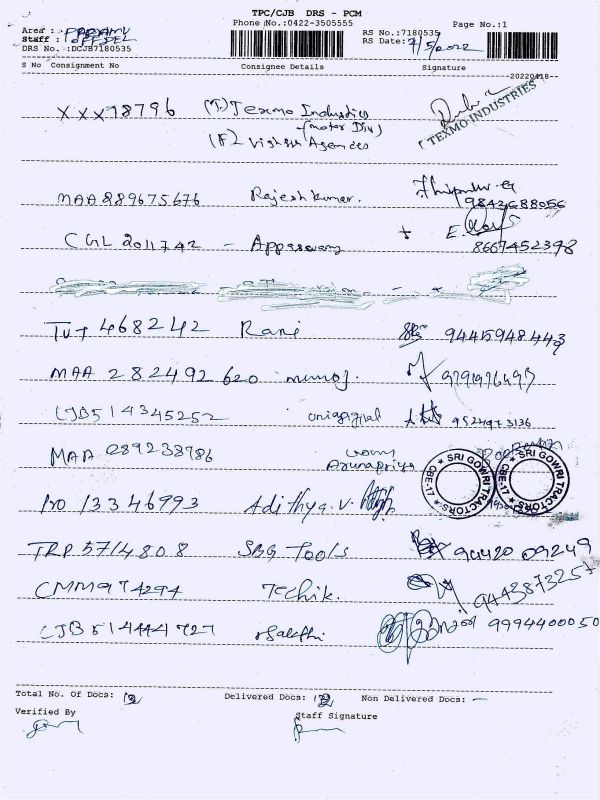 TPC/CJB DRS - PCM
Phone No.:0422-3505555 Page No.:1
Area :
Staff : RS No.:7180535
DRS No. :DCJB7180535 RS Date: 7/5/2022
S No Consignment No Consignee Details Signature
20220418--
XXX78796 (T) Texmo Industries
(Motor Div) TEXMO INDUSTRIES
(F) Agencies
MAA889675676 Rajeshkumar. 9843688056
CGL 2011742 - Appasamy E. 8667452398
TUT 468242 Rani 9441594844
MAA 282492620 manoj.
CJB514345252 9524973136
MAA 0289238786 Arunapriya SRI GOWRI TRACTORS ★ CBE-17 ★ SRI GOWRI TRACTORS ★ CBE-17 ★
13346993 Adithya.V.
TRP5714808 SBG Tools 94420 09249
CMM974294 Techik. 9443873257
CJB514444727 Sakthi 9994400050
Total No. Of Docs: 12 Delivered Docs: 12 Non Delivered Docs: —
Verified By Staff Signature